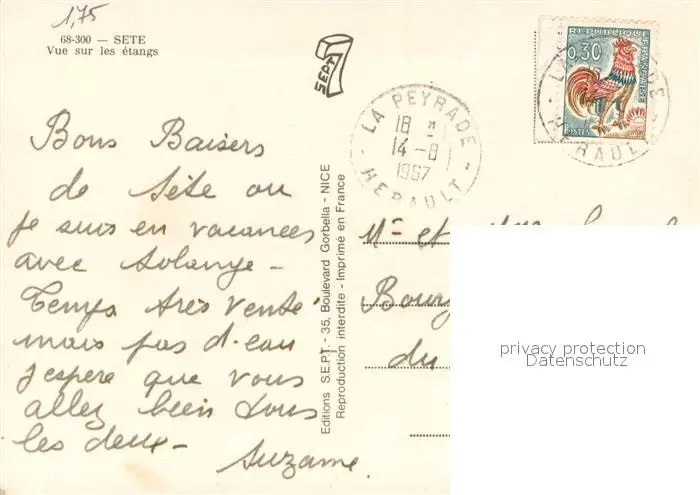 1,75
68-300 — SETE
Vue sur les étangs
SEPT
REPUBLIQUE FRANÇAISE
0,30
POSTES
LA PEYRADE
18 H
14-8
1967
HERAULT
Bons Baisers
de Sète ou
je suis en vacances
avec Solange -
Temps très venté
mais pas d'eau
j'espere que vous
allez bien tous
les deux -
Suzanne.
Editions S.E.P.T. - 35, Boulevard Gorbella - NICE
Reproduction interdite - Imprimé en France
Mr et
du
privacy protection
Datenschutz